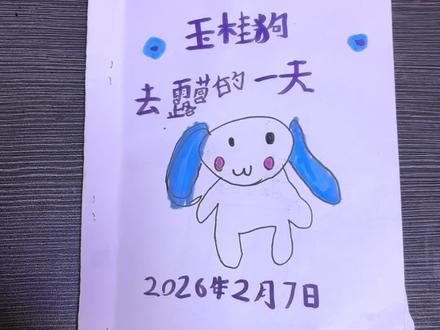 玉桂狗
去露营的一天
2026年2月7日